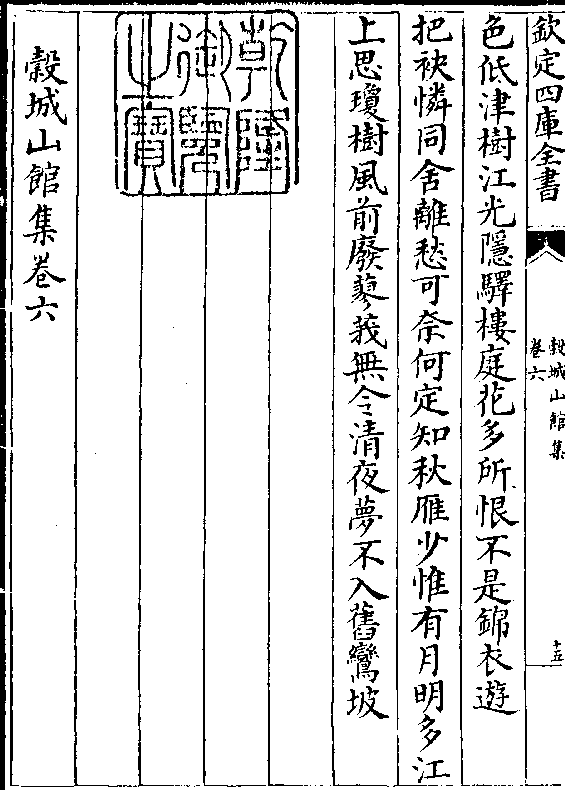 欽定四庫全書
穀城山館集
卷六
十五
色低津樹江光隱驛樓庭花多所恨不是錦衣遊
把袂憐同舍離愁可奈何定知秋雁少惟有月明多江
上思瓊樹風前廢蓼莪無令清夜夢不入舊鸞坡
乾隆
御覽
之寶
穀城山館集卷六